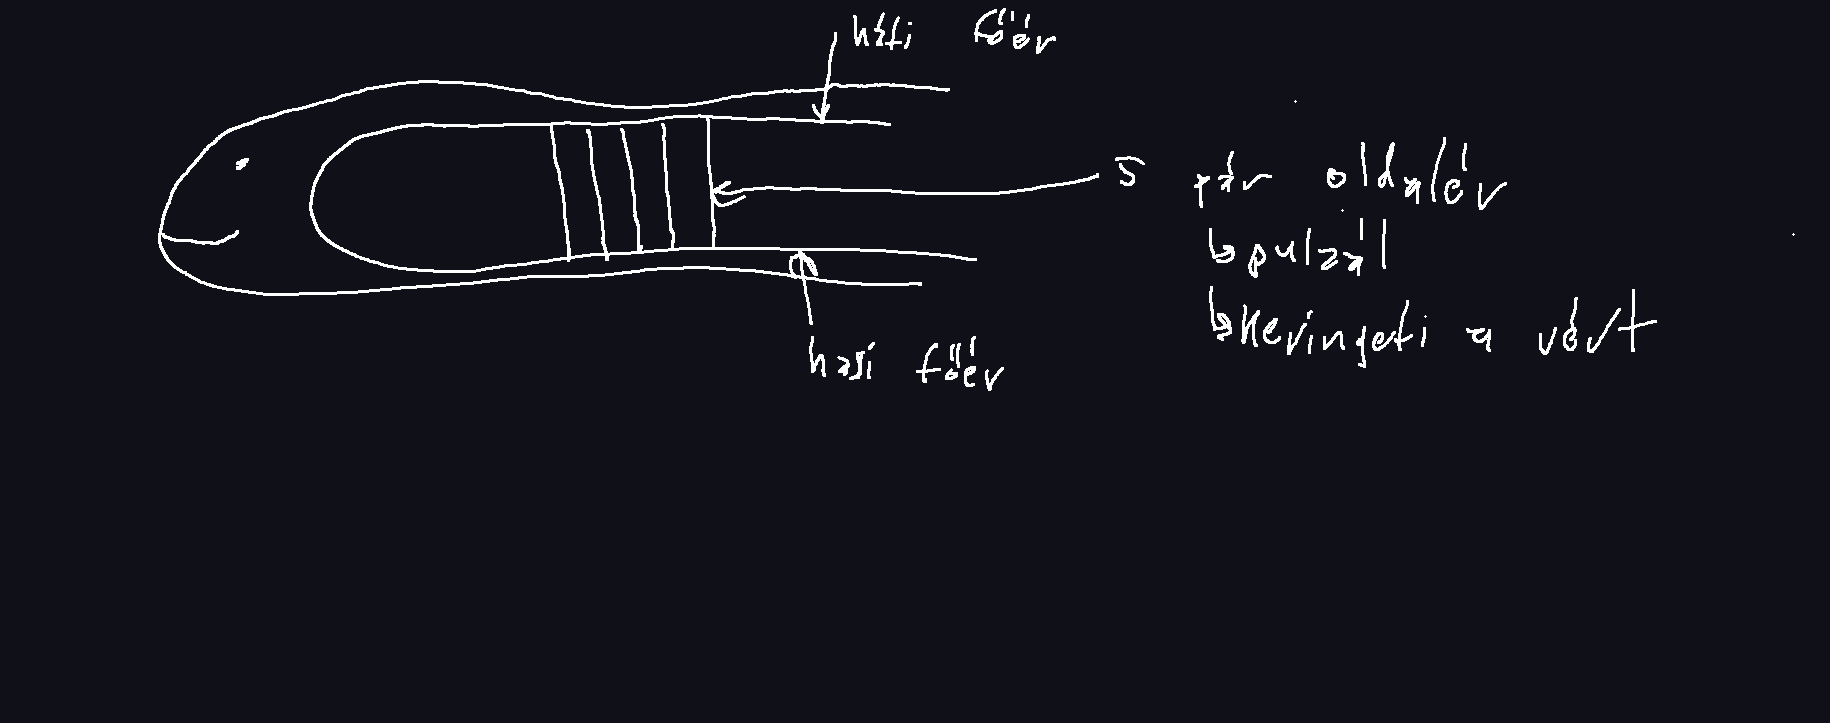 háti főér
5 pár oldalér
↳ pulzál
↳ keringeti a vért
hasi főér